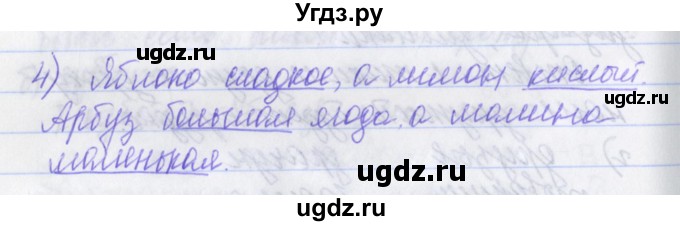 Угдз.ру
ugdz.ru
ugdz.ru
4) Яблоко сладкое, а лимон кислый.
ugdz.ru
Арбуз большая ягода, а малина
маленькая.
ugdz.ru
ugdz.ru